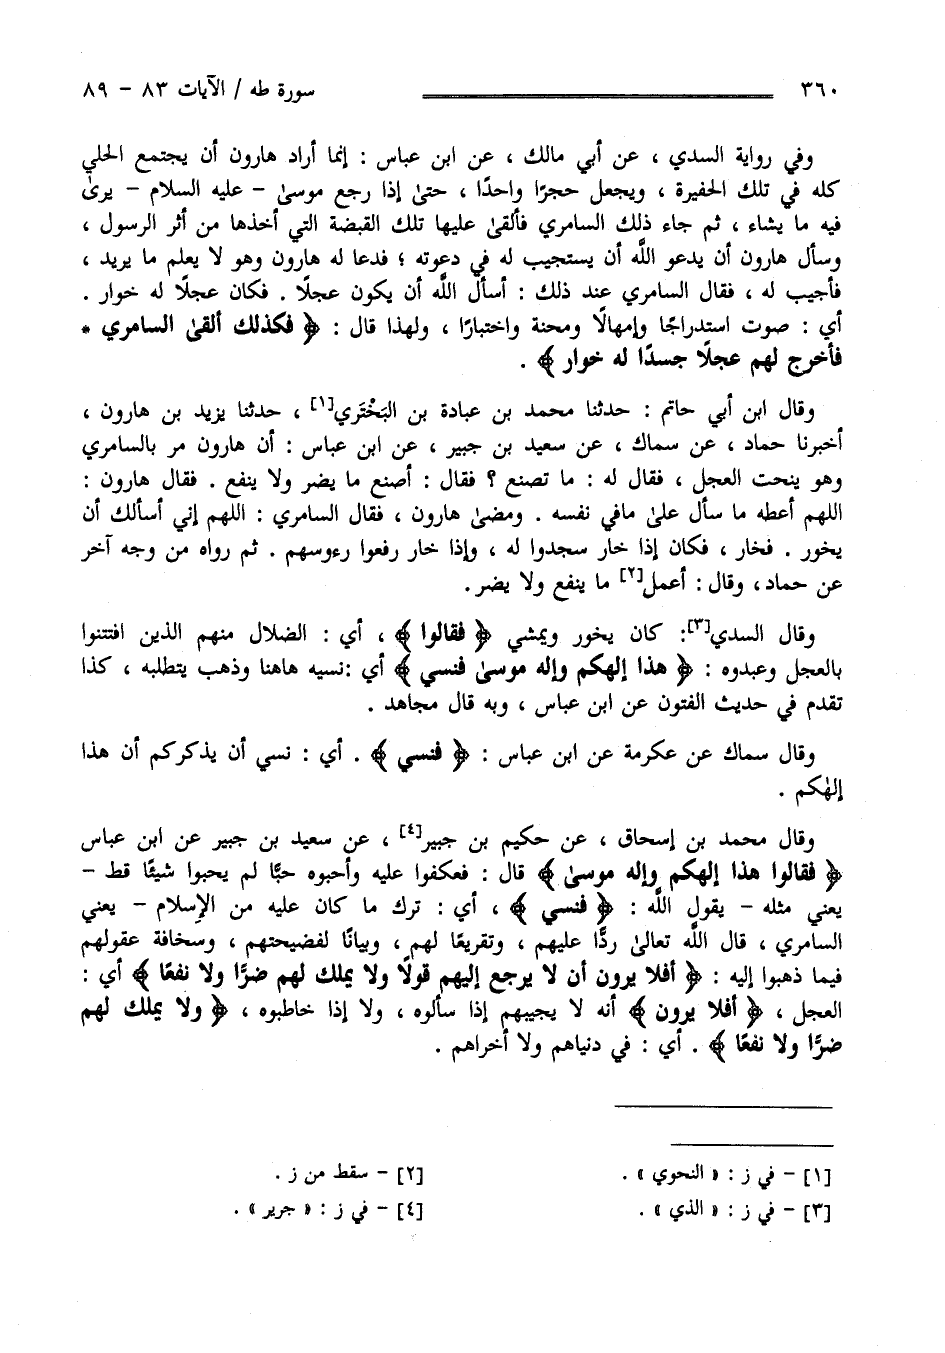 ٣٦٠ سورة طه / الآيات ٨٣ - ٨٩
وفي رواية السدي ، عن أبي مالك ، عن ابن عباس : إنما أراد هارون أن يجتمع الحلي
كله في تلك الحفيرة ، ويجعل حجرًا واحدًا ، حتىٰ إذا رجع موسىٰ - عليه السلام - يرىٰ
فيه ما يشاء ، ثم جاء ذلك السامري فألقىٰ عليها تلك القبضة التي أخذها من أثر الرسول ،
وسأل هارون أن يدعو اللَّه أن يستجيب له في دعوته ؛ فدعا له هارون وهو لا يعلم ما يريد ،
فأجيب له ، فقال السامري عند ذلك : أسأل اللَّه أن يكون عجلًا . فكان عجلًا له خوار .
أي : صوت استدراجًا وإمهالًا ومحنة واختبارًا ، ولهذا قال : ﴿ فكذلك ألقىٰ السامري *
فأخرج لهم عجلًا جسدًا له خوار ﴾ .
وقال ابن أبي حاتم : حدثنا محمد بن عبادة بن البَخْتَري[١] ، حدثنا يزيد بن هارون ،
أخبرنا حماد ، عن سماك ، عن سعيد بن جبير ، عن ابن عباس : أن هارون مر بالسامري
وهو ينحت العجل ، فقال له : ما تصنع ؟ فقال : أصنع ما يضر ولا ينفع . فقال هارون :
اللهم أعطه ما سأل علىٰ مافي نفسه . ومضىٰ هارون ، فقال السامري : اللهم إني أسألك أن
يخور . فخار ، فكان إذا خار سجدوا له ، وإذا خار رفعوا رءوسهم . ثم رواه من وجه آخر
عن حماد، وقال : أعمل[٢] ما ينفع ولا يضر.
وقال السدي[٣]: كان يخور ويمشي ﴿ فقالوا ﴾ ، أي : الضلال منهم الذين افتتنوا
بالعجل وعبدوه : ﴿ هذا إلهكم وإله موسىٰ فنسي ﴾ أي :نسيه هاهنا وذهب يتطلبه ، كذا
تقدم في حديث الفتون عن ابن عباس ، وبه قال مجاهد .
وقال سماك عن عكرمة عن ابن عباس : ﴿ فنسي ﴾ . أي : نسي أن يذكركم أن هذا
إلهٰكم .
وقال محمد بن إسحاق ، عن حكيم بن جبير[٤] ، عن سعيد بن جبير عن ابن عباس
﴿ فقالوا هذا إلهكم وإله موسىٰ ﴾ قال : فعكفوا عليه وأحبوه حبًّا لم يحبوا شيئًا قط -
يعني مثله - يقول اللَّه : ﴿ فنسي ﴾ ، أي : ترك ما كان عليه من الإسلام - يعني
السامري ، قال اللَّه تعالىٰ ردًّا عليهم ، وتقريعًا لهم، وبيانًا لفضيحتهم ، وسخافة عقولهم
فيما ذهبوا إليه : ﴿ أفلا يرون أن لا يرجع إليهم قولًا ولا يملك لهم ضرًّا ولا نفعًا ﴾ أي :
العجل ، ﴿ أفلا يرون ﴾ أنه لا يجيبهم إذا سألوه ، ولا إذا خاطبوه ، ﴿ ولا يملك لهم
ضرًّا ولا نفعًا ﴾ . أي : في دنياهم ولا أخراهم .
[١] - في ز : « النحوي » . [٢] - سقط من ز .
[٣] - في ز : « الذي » . [٤] - في ز : « جرير » .